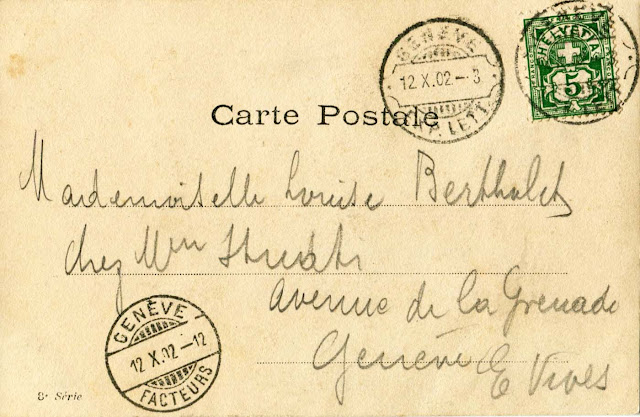 GENÈVE
12 X.02 - 3
EXP. LETT.
HELVETIA
5
Carte Postale
Mademoiselle Louise Bertholet
chez Mme
Avenue de la Grenade
Genève
E Vives
GENÈVE
12 X.02 - 12
FACTEURS
8e Série